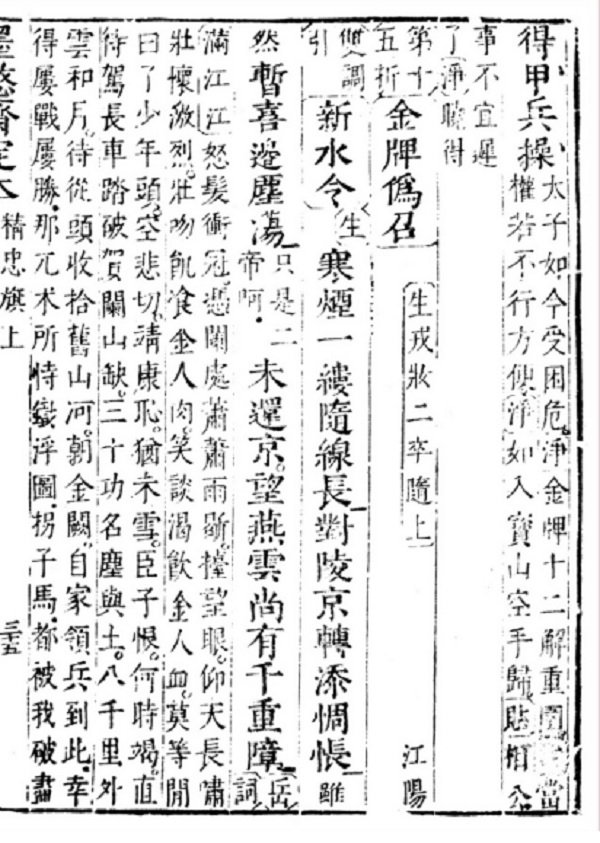 得甲兵操
太子如今受困危。淨金牌十二解重圍。當
權若不行方便。淨如入寶山空手歸。貼相公
事不宜遲
了淨曉得
第十
五折
金牌僞召
生戎妝二卒隨上
江陽
雙調
引
新水令
生
寒煙一縷隨線長。對陵京轉添惆悵。雖
然暫喜邊塵蕩。
只是二
帝呵。
未還京。望燕雲尚有千重障。
岳
詞
滿江江怒髮衝冠。憑闌處蕭蕭雨歇。擡望眼。仰天長嘯
壯懷激烈。壯吻飢飡金人肉。笑談渴飲金人血。莫等閒
白了少年頭。空悲切。靖康恥。猶未雪。臣子恨。何時竭。直
待駕長車踏破賀闌山缺。三十功名塵與土。八千里外
雲和月。待從頭收拾舊山河。朝金闕。自家領兵到此。幸
得屢戰屢勝。那兀术所恃鐵浮圖。拐子馬。都被我破盡
墨憨齋定本
精忠旗上
三十五